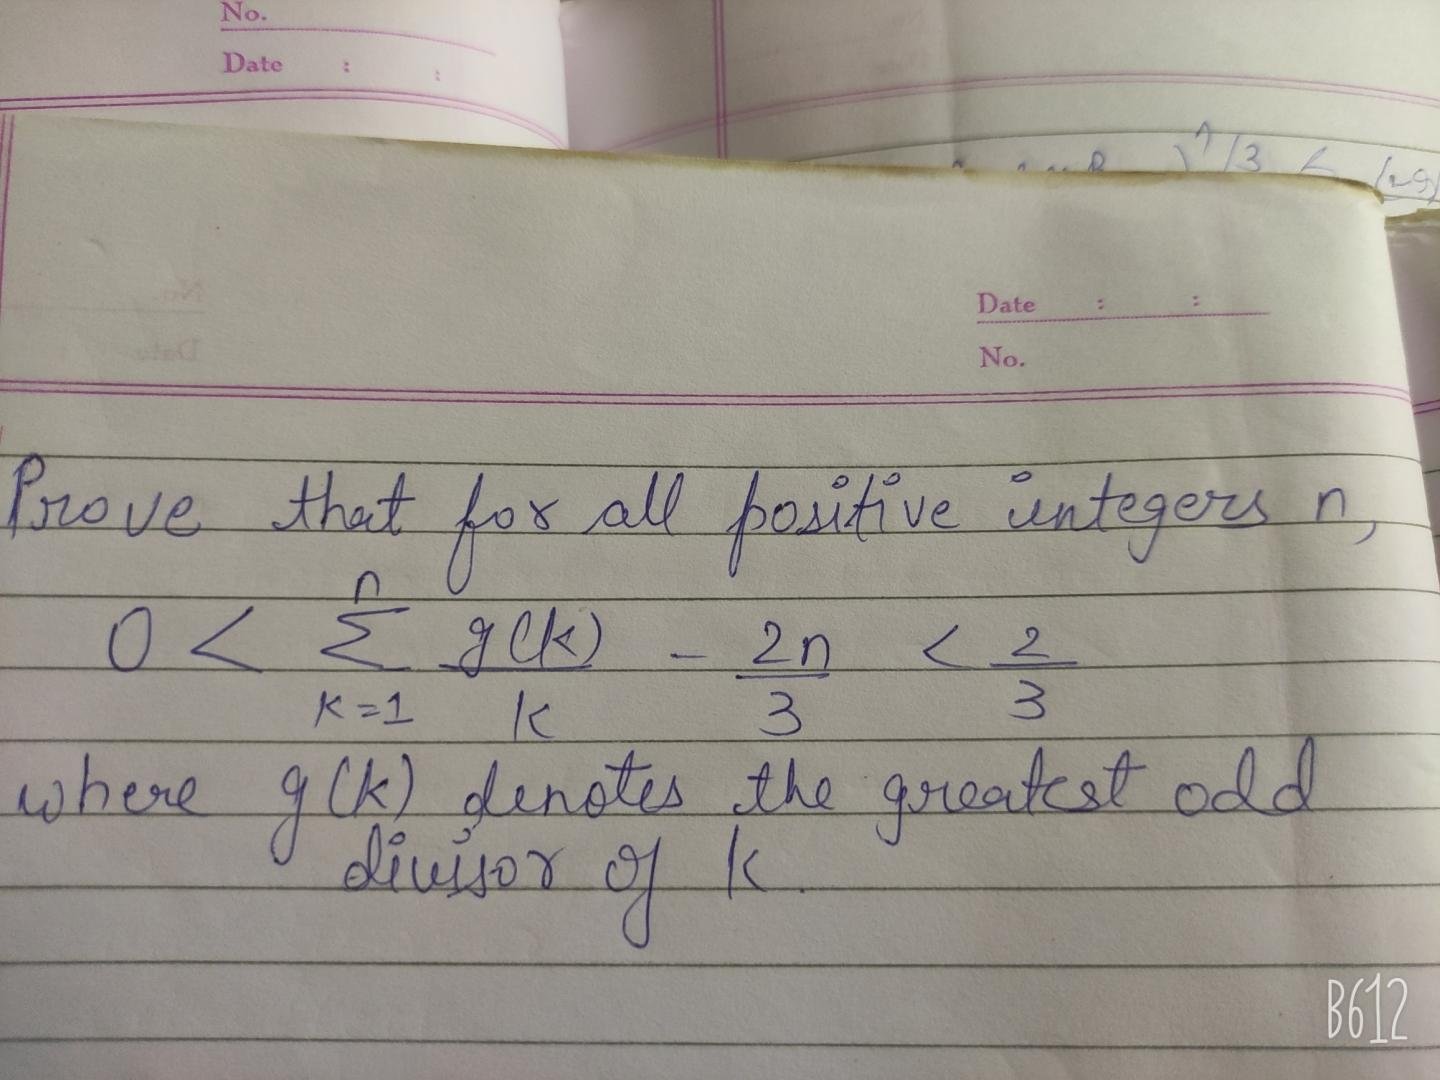 No.
Date : :
)^n/3 <
Date : :
No.
Prove that for all positive integers n,
0 < n∑k=1 g(k)/k - 2n/3 < 2/3
where g(k) denotes the greatest odd
divisor of k.
B612